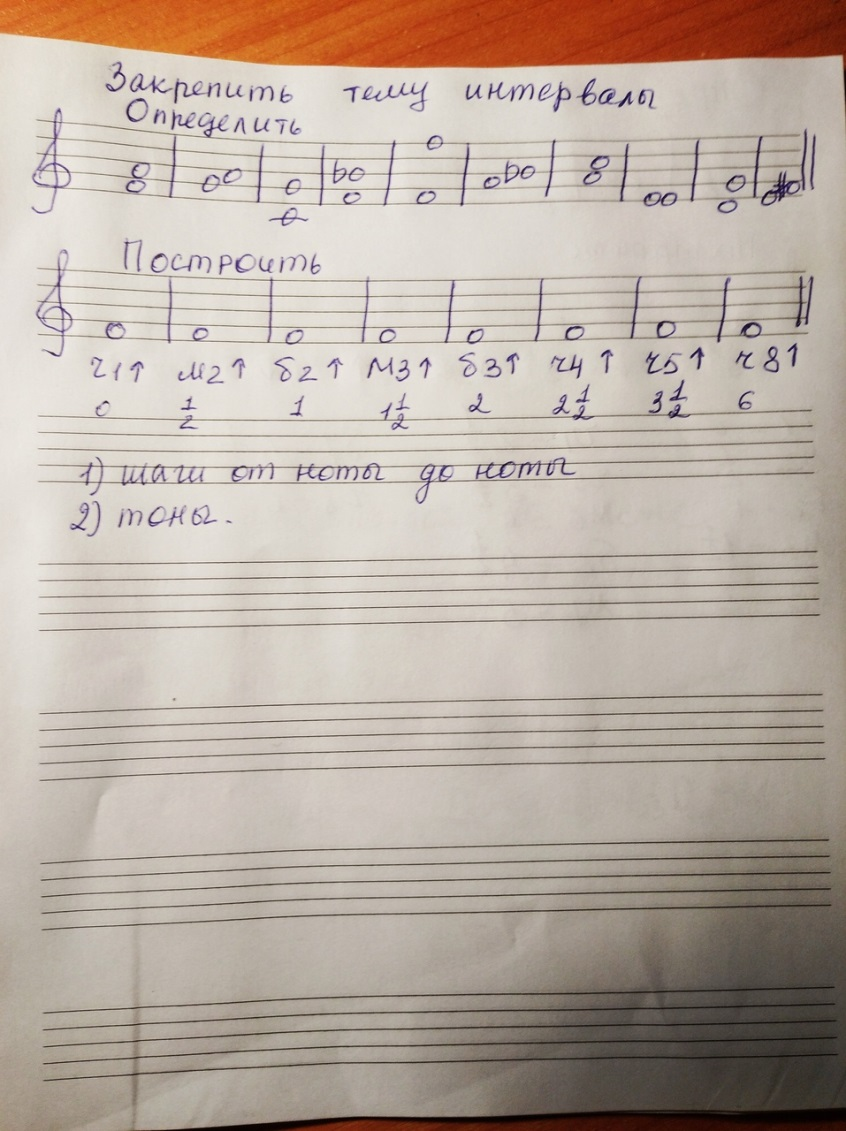 Закрепить тему интервалы
Определить
Построить
ч1↑ м2↑ б2↑ м3↑ б3↑ ч4↑ ч5↑ ч8↑
0 1/2 1 1 1/2 2 2 1/2 3 1/2 6
1) шаги от ноты до ноты
2) тоны.